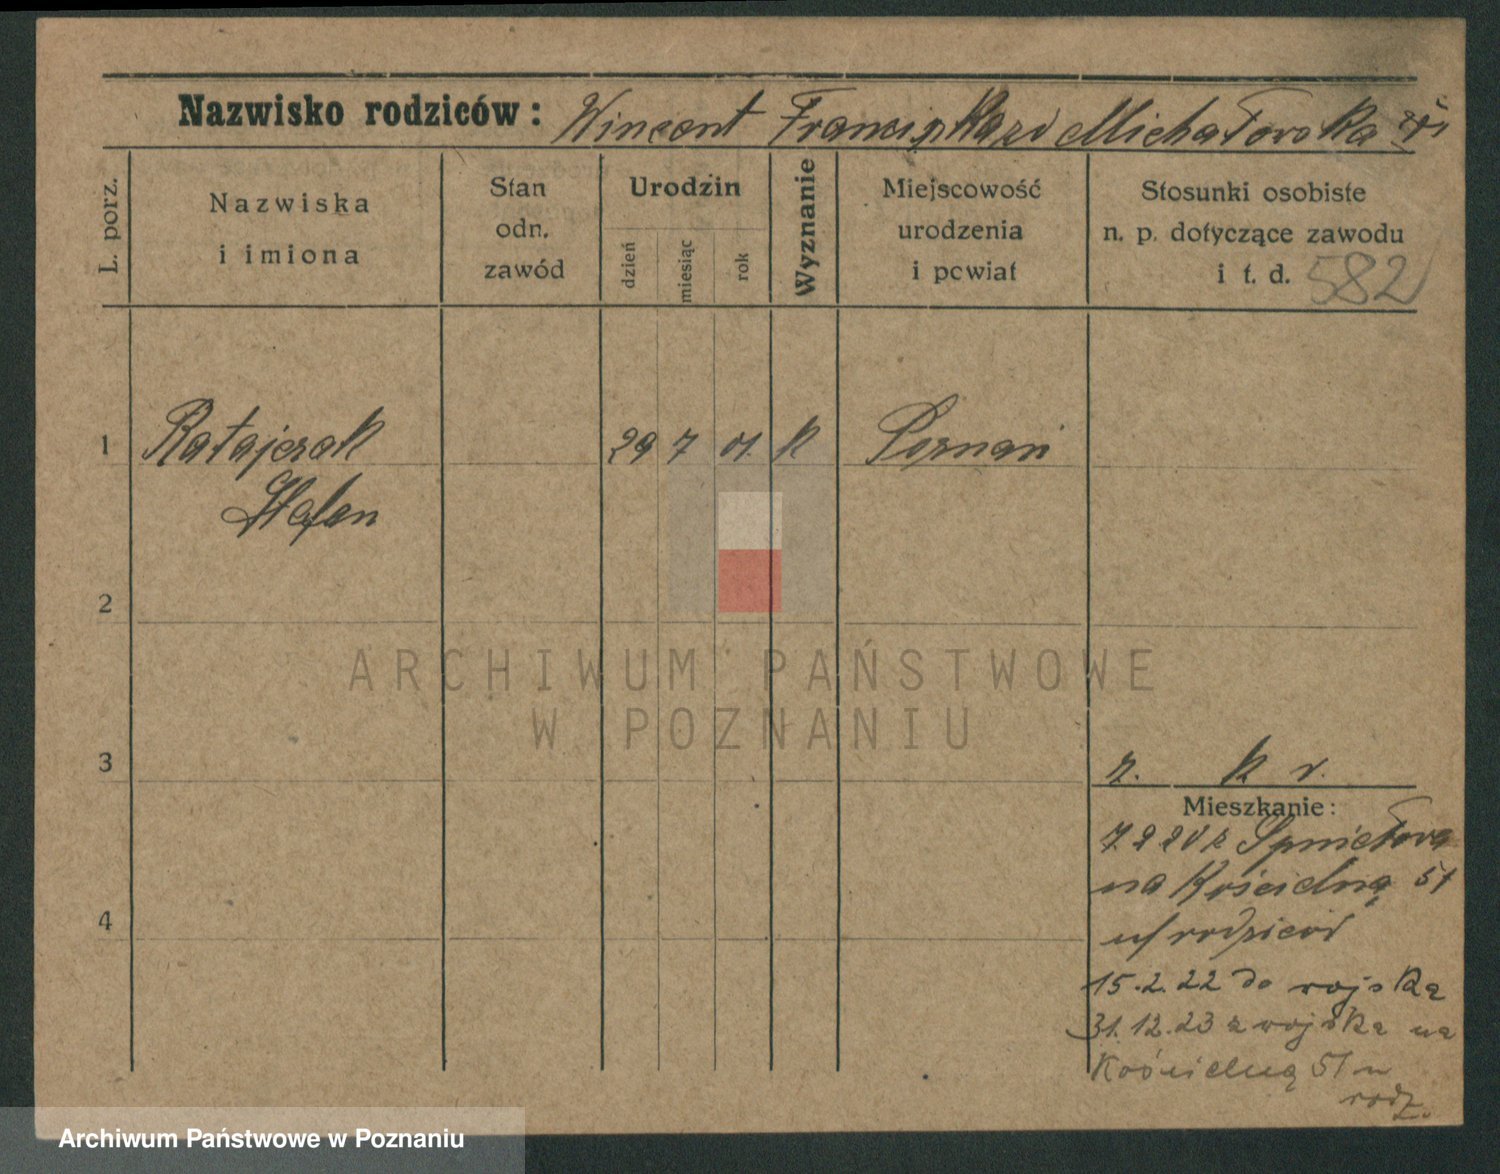 Nazwisko rodziców: Wincent Franciszka zd Michałowska
L. porz.
Nazwiska
i imiona
Stan
odn.
zawód
Urodzin
dzień
miesiąc
rok
Wyznanie
Miejscowość
urodzenia
i pcwiat
Stosunki osobiste
n. p. dotyczące zawodu
i t. d. 582
1 Ratajczak 29 7 01. k Poznań
Stefan
2
ARCHIWUM PAŃSTWOWE
W POZNANIU
3
k v.
Mieszkanie:
7.2 22
na Kościelną 51
u/rodziców
4
15.2.22 do wojska
31.12.23 z wojska na
Kościelną 51 u
rodz.
Archiwum Państwowe w Poznaniu